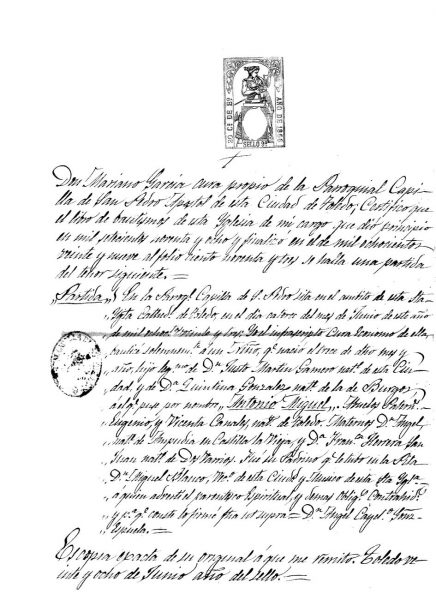 AÑO DE 18
SELLO 9º
Don Mariano Garcia cura propio de la Parroquial Capi-
lla de San Pedro Apostol de esta Ciudad de Toledo, Certifico que
el libro de bautismos de esta Yglesia de mi cargo que dio principio
en mil setecientos noventa y ocho y finalizó en el de mil ochocientos
veinte y nueve al folio ciento noventa y tres se halla una partida
del tenor siguiente. =
Partida En la Parroql Capilla de S. Pedro sita en el ambito de esta Sta
Ygla de Toledo, en el dia catorce del mes de Junio de este año
de mil veinte y tres Yo el infrascripto Cura Economo de ella
bauticé solemnemte á un Niño, qe nacio el trece de dho mes y
año, hijo de Dn Justo Martin Gamero natl de esta Ciu-
dad y de Da Quintina Gonzalez natl de la de Burgos
á el qe puse por nombre, Antonio Miguel. Abuelos Patern
Eugenio, y Vicenta natl de Toledo, Maternos Dn Angel
natl de Ampudia en Castilla la Vieja, y Da Franca Herrera
natl de Fue su Padrino qe le tubo en la Pila
Dn Miguel Blanco, de esta Ciudad y de esta Sta Ygla
á quien advertí el parentesco Espiritual, y demas obligs
y pa qe conste lo firmé fha ut supra = Dn Angel Gonz
Es copia exacta de su original á que me remito. Toledo ve-
inte y ocho de Junio año del sello. =